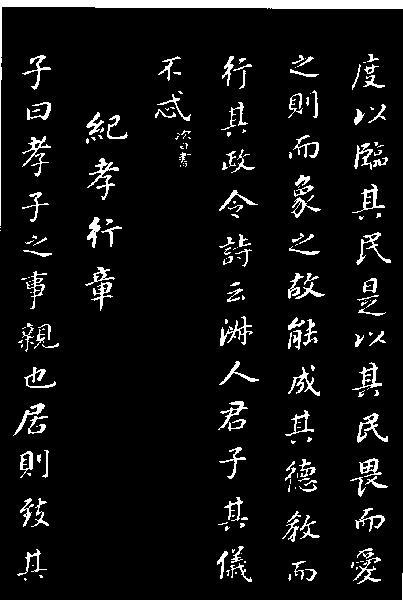 度以臨其民是以其民畏而愛
之則而象之故能成其德教而
行其政令詩云淑人君子其儀
不忒次日書
紀孝行章
子曰孝子之事親也居則致其